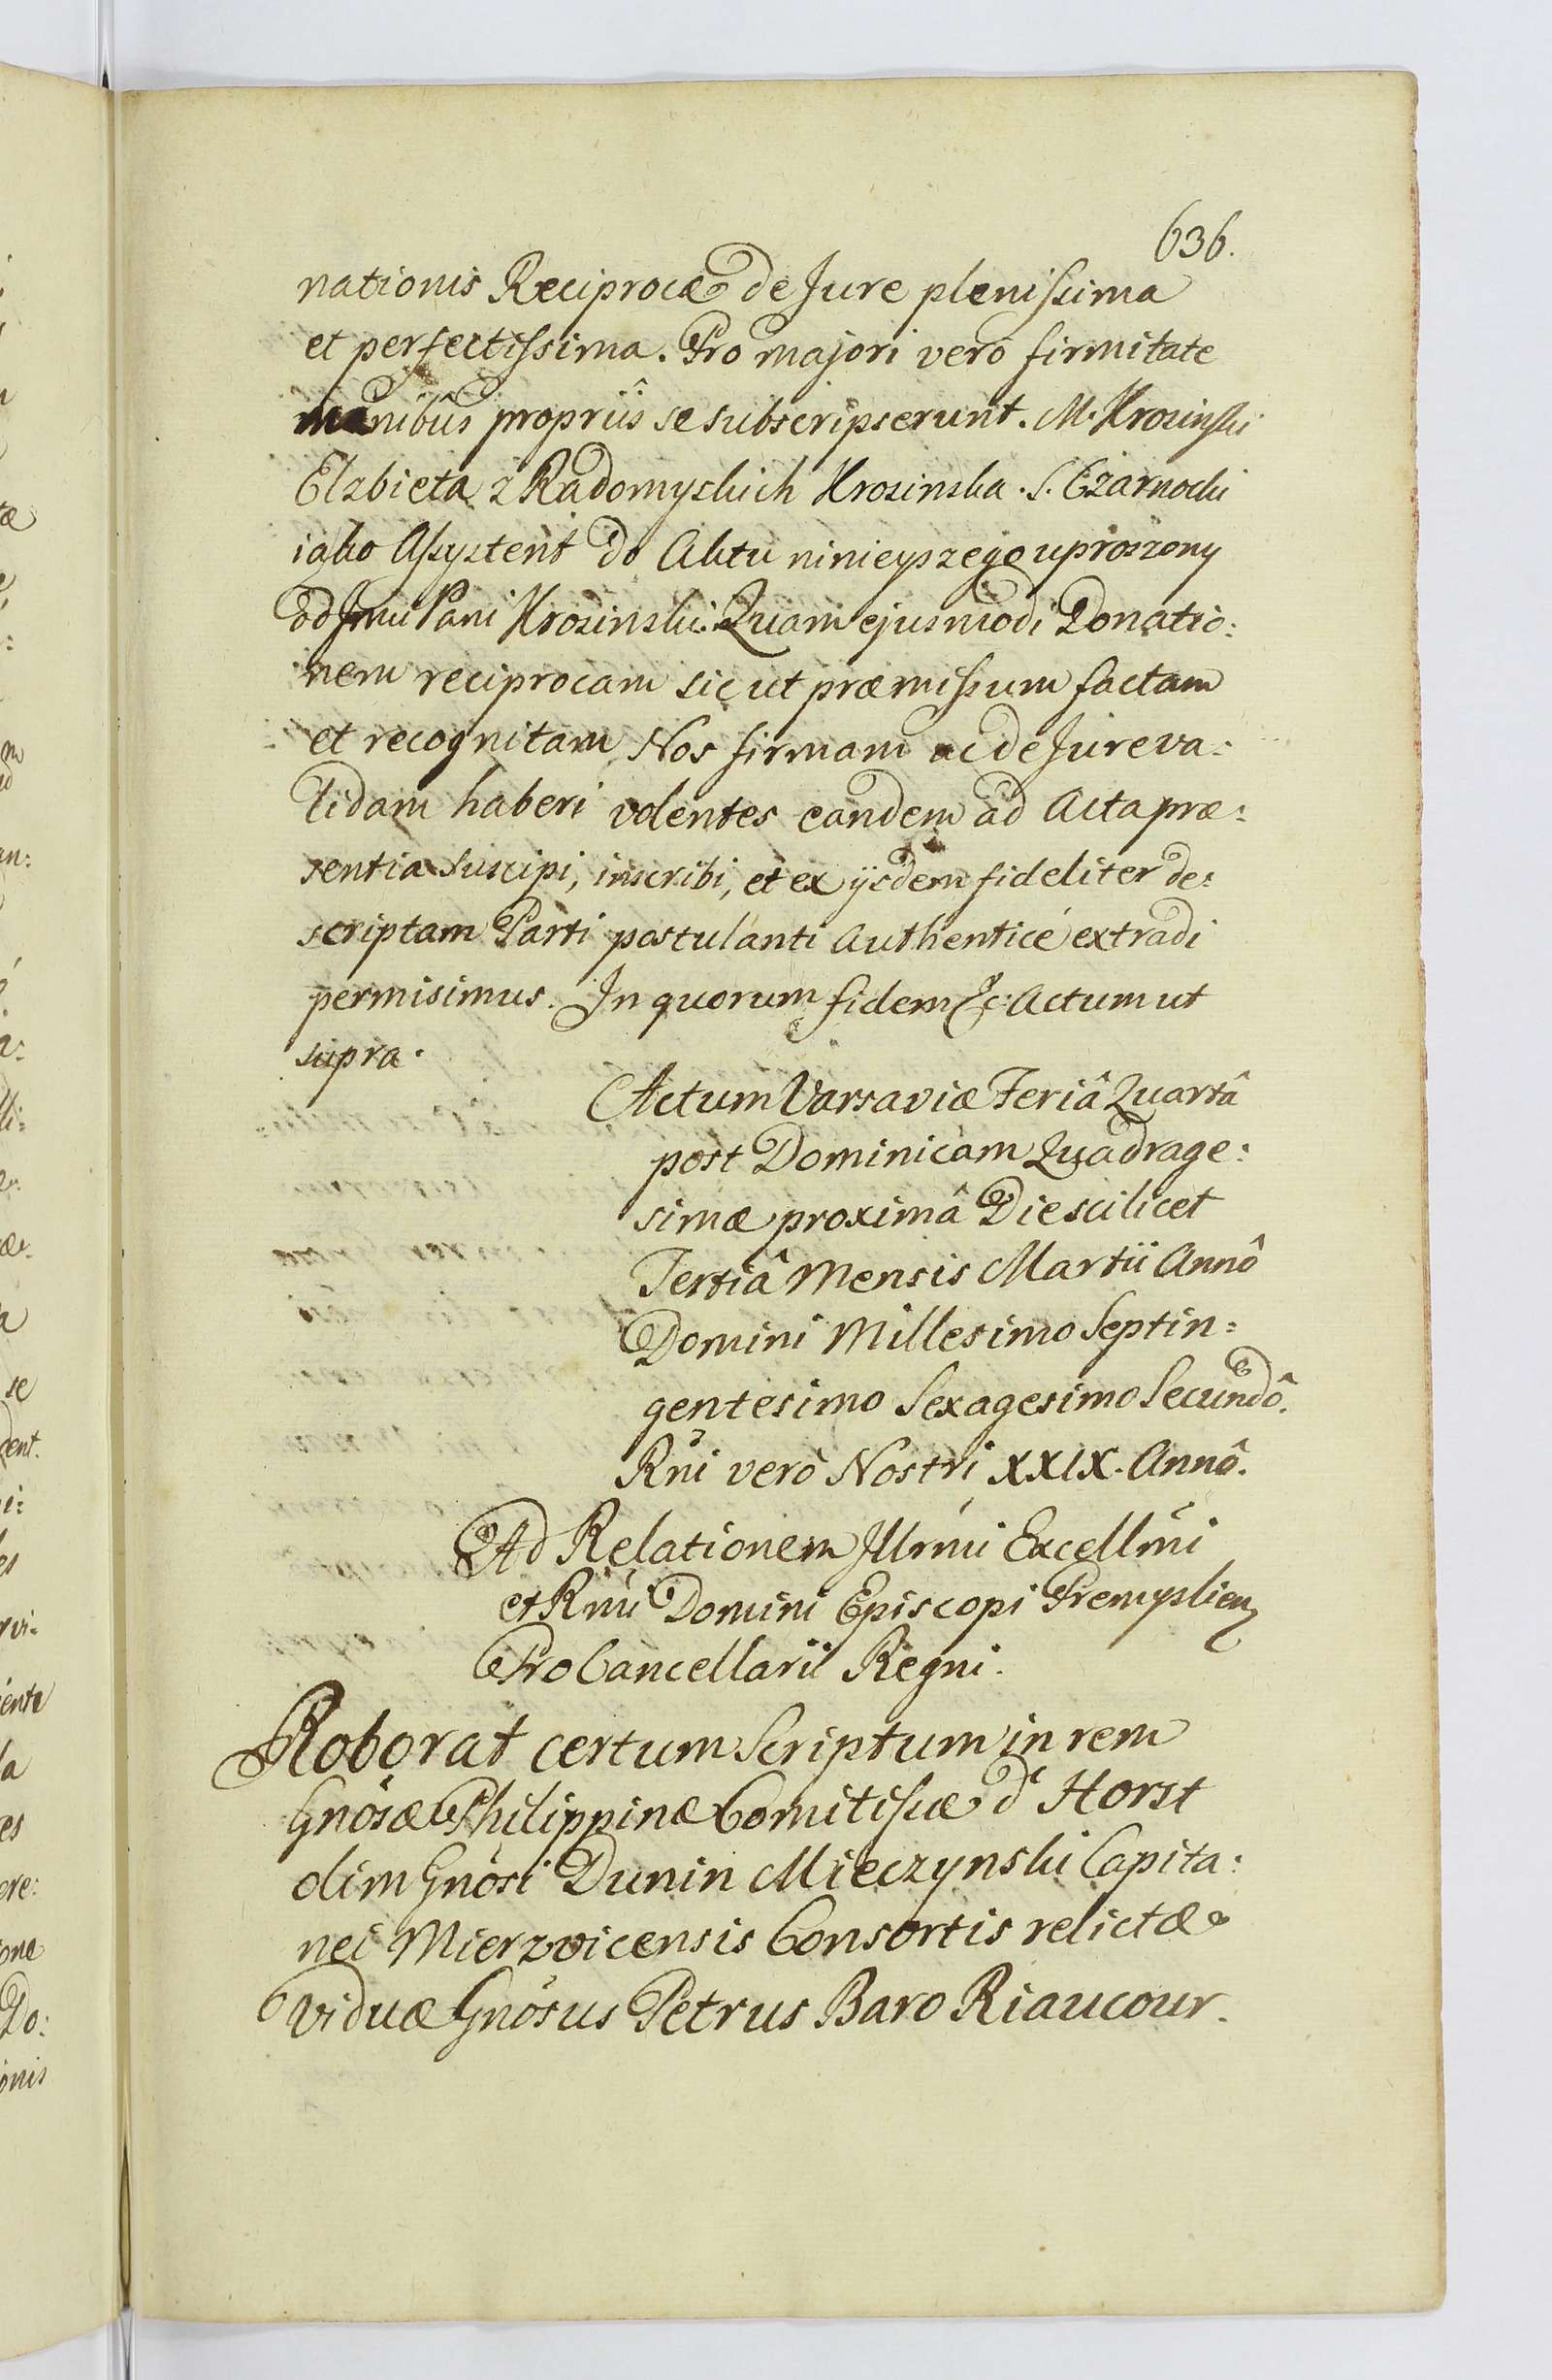 636.
nationis Reciprocæ de Jure plenissima
et perfectissima. Pro majori verò firmitate
manibûs propriîs se subscripserunt. M. Krosinski
Elzbieta z Radomyskich Krosinska. S. Czarnocki
iako Assystent do Aktu ninieyszego uproszony
od Jmci Pani Krosinski. Quam ejusmodi Donatio:
nem reciprocam sicut præmissum factam
et recognitam Nos firmam ac de Jure va:
lidam haberi volentes eandem ad Acta præ:
sentia suscipi, inscribi, et ex ijsdem fideliter de:
scriptam Parti postulanti Authenticè extradi
permisimus. In quorum fidem &c: Actum ut
supra.
Actum Varsaviæ Feriâ Quartâ
post Dominicam Quadrage:
simæ proximâ Die scilicet
Tertiâ Mensis Martii Annô
Domini Millesimo Septin:
gentesimo Sexagesimo Secundô.
Rñi verò Nostri XXIX. Annô.
Ad Relationem Illrmi Excellmi
et Rmi Domini Episcopi Premyslien
ProCancellarii Regni.
Roborat certum Scriptum in rem
Gnosæ Philippinæ Comitissæ d' Horst
olim Gnosi Dunin Mieczynski Capita:
nei Mierzvicensis Consortis relictæ
Viduæ Gnosus Petrus Baro Riaucour.